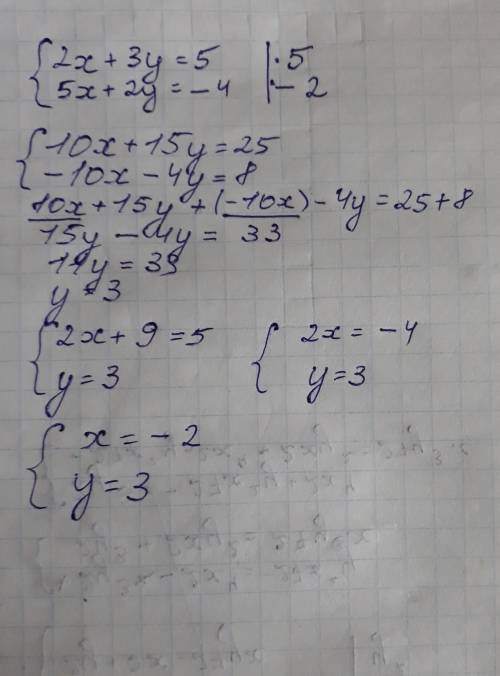 2x + 3y = 5 | · 5
5x + 2y = -4 | · -2
10x + 15y = 25
-10x - 4y = 8
10x + 15y + (-10x) - 4y = 25 + 8
15y - 4y = 33
11y = 33
y = 3
2x + 9 = 5 2x = -4
y = 3 y = 3
x = -2
y = 3